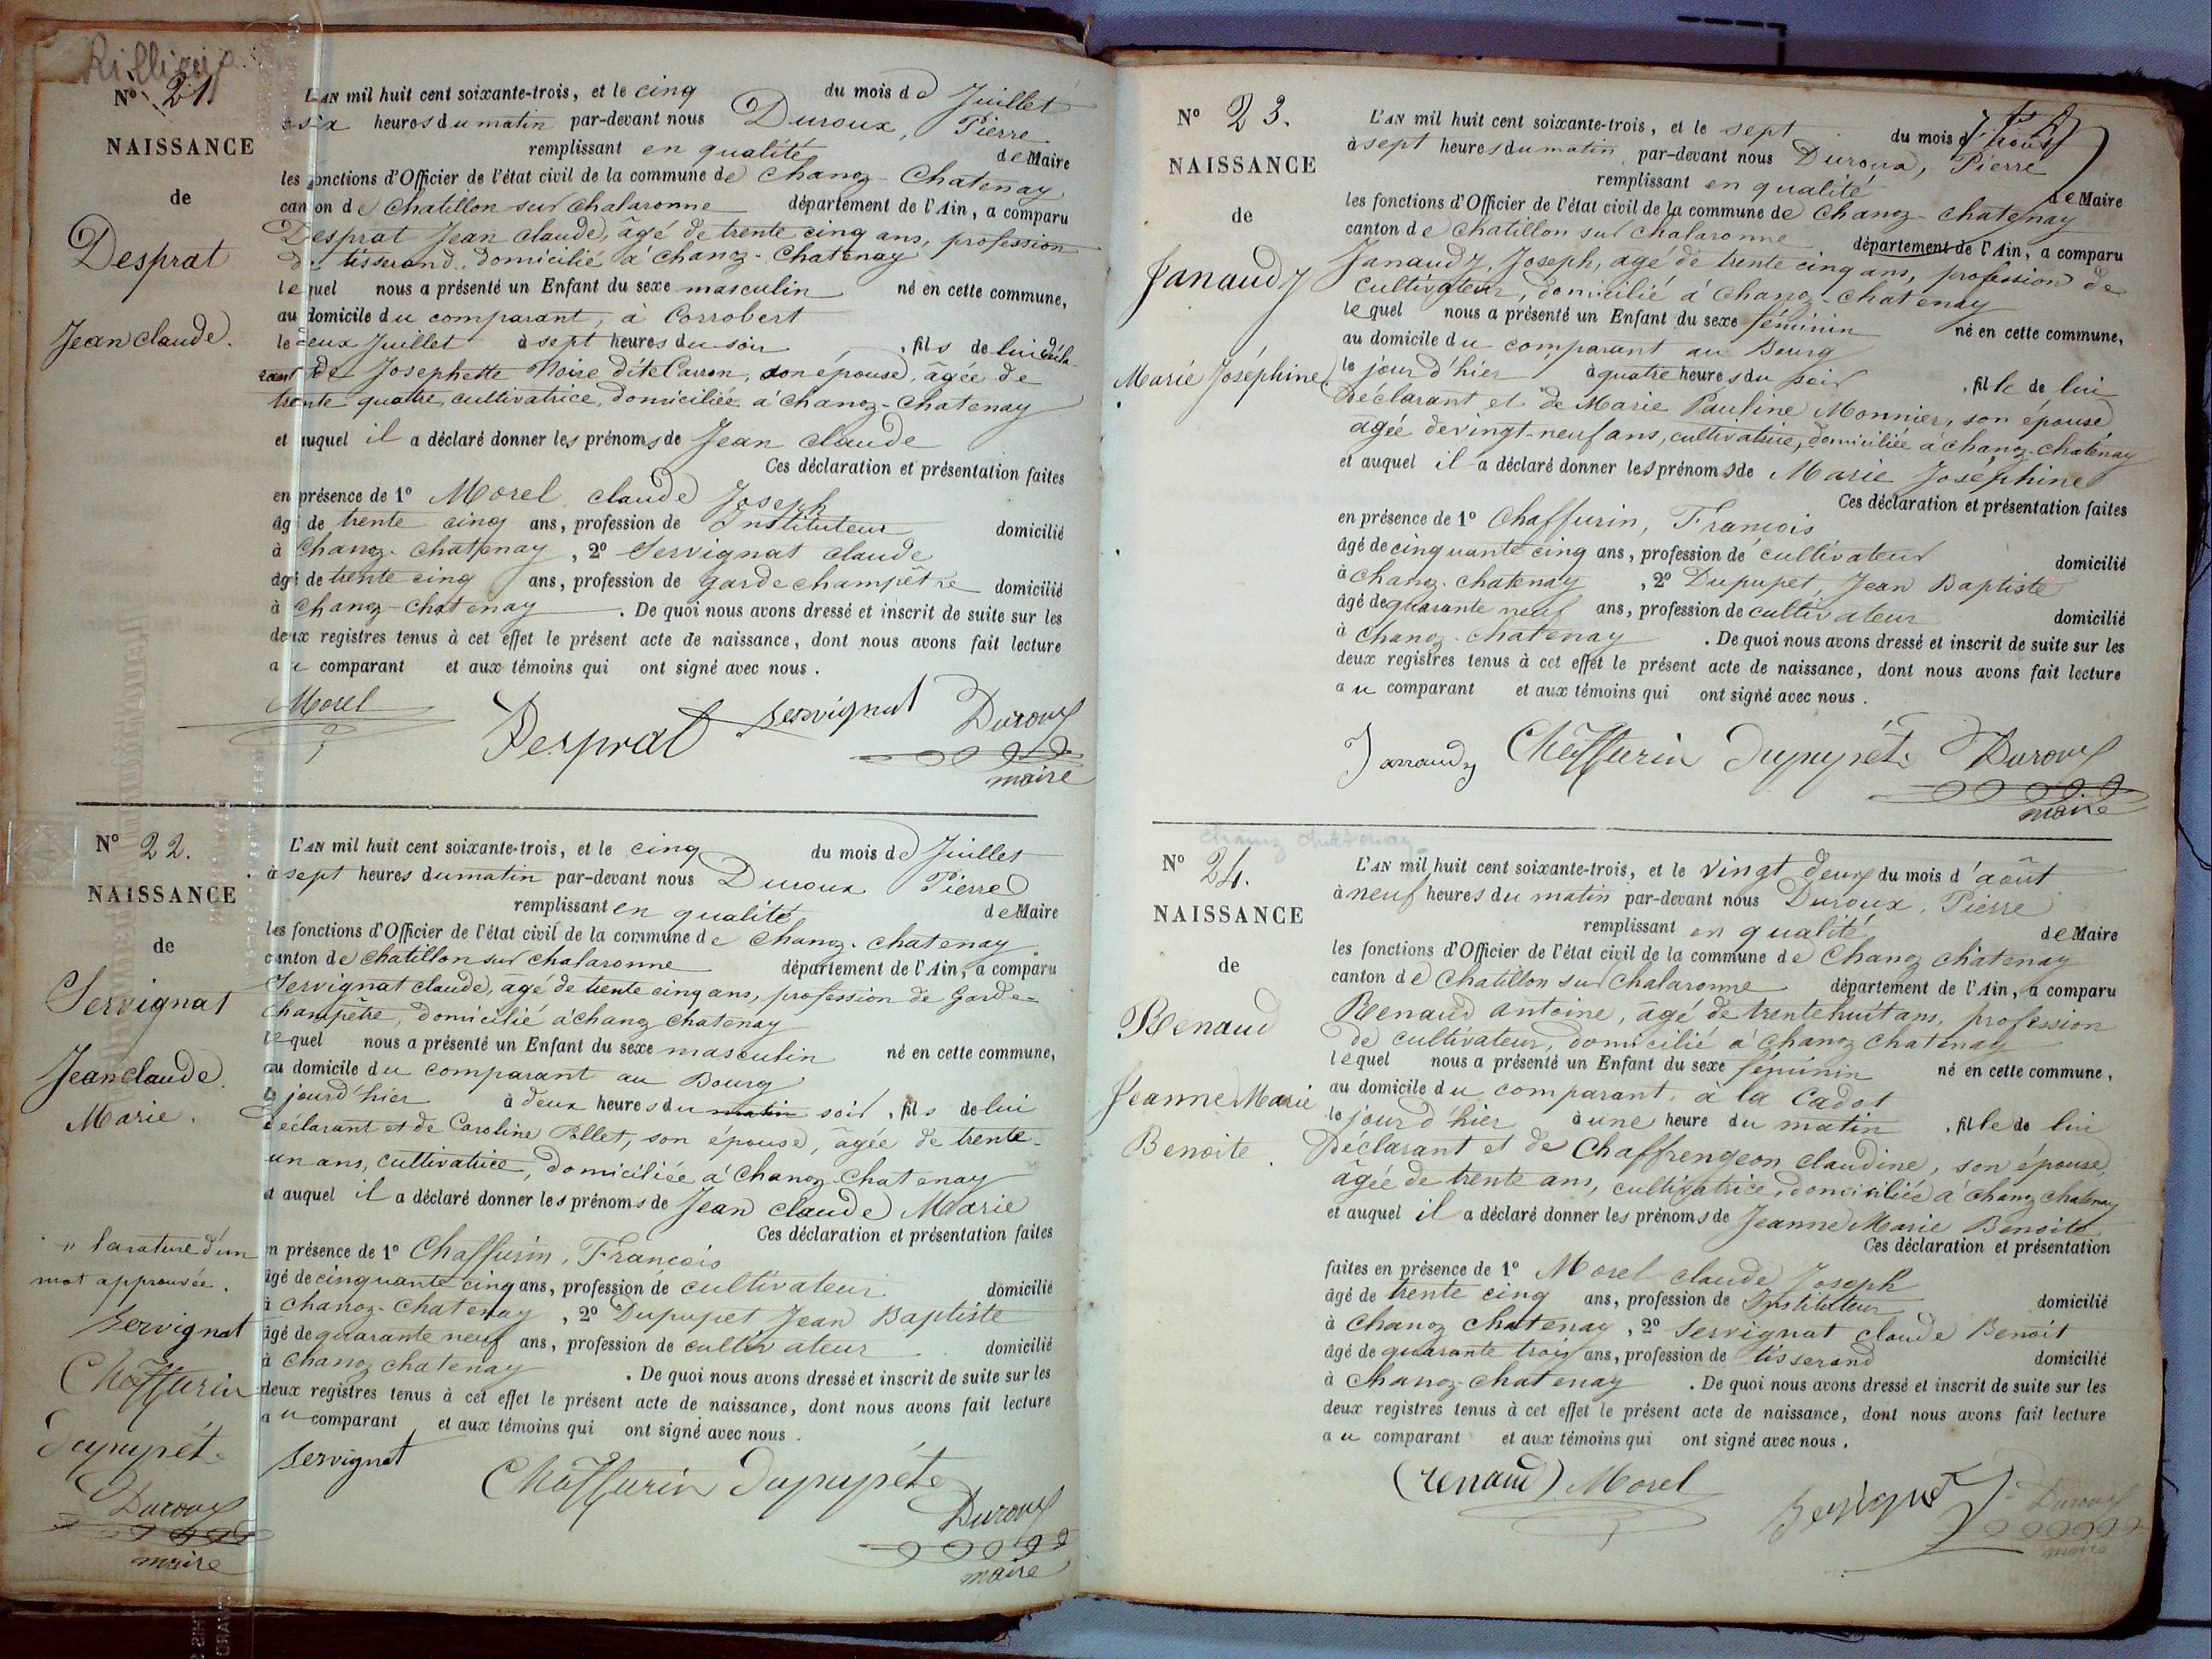 Nº 21.
NAISSANCE
de
Desprat
Jean claude.
L'AN mil huit cent soixante-trois, et le cinq du mois de Juillet
à six heures du matin par-devant nous Duroux, Pierre
remplissant en qualité de Maire
les fonctions d'Officier de l'état civil de la commune de Chanoz-Chatenay
canton de Chatillon sur Chalaronne département de l'Ain, a comparu
Desprat Jean claude, âgé de trente cinq ans, profession
de tisserand, domicilié à Chanoz-Chatenay
lequel nous a présenté un Enfant du sexe masculin né en cette commune,
au domicile du comparant, à Corrobert
le deux Juillet à sept heures du soir, fils de lui décla
rant et de Josephette Noire dite Carron, son épouse, âgée de
trente quatre, cultivatrice, domiciliée à Chanoz-Chatenay
et auquel il a déclaré donner les prénoms de Jean claude
Ces déclaration et présentation faites
en présence de 1º Morel claude Joseph
âgé de trente cinq ans, profession de Instituteur domicilié
à Chanoz-chatenay, 2º Servignat claude
âgé de trente cinq ans, profession de garde champêtre domicilié
à Chanoz-chatenay. De quoi nous avons dressé et inscrit de suite sur les
deux registres tenus à cet effet le présent acte de naissance, dont nous avons fait lecture
au comparant et aux témoins qui ont signé avec nous.
Morel Desprat servignat Duroux
maire
Nº 22.
NAISSANCE
de
Servignat
Jean claude
Marie.
L'AN mil huit cent soixante-trois, et le cinq du mois de Juillet
à sept heures du matin par-devant nous Duroux Pierre
remplissant en qualité de Maire
les fonctions d'Officier de l'état civil de la commune de Chanoz-chatenay
canton de Chatillon sur Chalaronne département de l'Ain, a comparu
Servignat claude, âgé de trente cinq ans, profession de Garde-
champêtre, domicilié à chanoz chatenay
lequel nous a présenté un Enfant du sexe masculin né en cette commune,
au domicile du comparant au Bourg
le jour d'hier à deux heures du matin soir, fils de lui
déclarant et de Caroline Pollet, son épouse, âgée de trente-
un ans, cultivatrice, domiciliée à Chanoz-Chatenay
et auquel il a déclaré donner les prénoms de Jean claude Marie
Ces déclaration et présentation faites
en présence de 1º Chaffurin, Francois
âgé de cinquante cinq ans, profession de cultivateur domicilié
à chanoz-chatenay, 2º Dupupet Jean Baptiste
âgé de quarante neuf ans, profession de cultivateur domicilié
à chanoz chatenay. De quoi nous avons dressé et inscrit de suite sur les
deux registres tenus à cet effet le présent acte de naissance, dont nous avons fait lecture
au comparant et aux témoins qui ont signé avec nous.
servignat Chaffurin dupupét Duroux
maire
" la rature d'un
mot approuvée.
servignat
Chaffurin
dupupét
Duroux
maire
Nº 23.
NAISSANCE
de
Janaudy
Marie Joséphine
L'AN mil huit cent soixante-trois, et le sept du mois d'Août
à sept heures du matin par-devant nous Duroux, Pierre
remplissant en qualité de Maire
les fonctions d'Officier de l'état civil de la commune de Chanoz-chatenay
canton de Chatillon sur Chalaronne département de l'Ain, a comparu
Janaudy, Joseph, âgé de trente cinq ans, profession de
cultivateur, domicilié à Chanoz-Chatenay
lequel nous a présenté un Enfant du sexe féminin né en cette commune,
au domicile du comparant au Bourg
le jour d'hier à quatre heures du soir, fille de lui
Déclarant et de Marie Pauline Monnier, son épouse
âgée de vingt-neuf ans, cultivatrice, domiciliée à chanoz-chatenay
et auquel il a déclaré donner les prénoms de Marie Joséphine
Ces déclaration et présentation faites
en présence de 1º Chaffurin, Francois
âgé de cinquante cinq ans, profession de cultivateur domicilié
à Chanoz-chatenay, 2º Dupupet, Jean Baptiste
âgé de quarante neuf ans, profession de cultivateur domicilié
à Chanoz-chatenay. De quoi nous avons dressé et inscrit de suite sur les
deux registres tenus à cet effet le présent acte de naissance, dont nous avons fait lecture
au comparant et aux témoins qui ont signé avec nous.
Janaudy Chaffurin dupupét Duroux
maire
Nº 24.
NAISSANCE
de
Renaud
Jeanne Marie
Benoite.
L'AN mil huit cent soixante-trois, et le vingt deux du mois d'août
à neuf heures du matin par-devant nous Duroux, Pierre
remplissant en qualité de Maire
les fonctions d'Officier de l'état civil de la commune de Chanoz chatenay
canton de Chatillon sur Chalaronne département de l'Ain, a comparu
Renaud antoine, âgé de trente huit ans, profession
de cultivateur, domicilié à chanoz chatenay
lequel nous a présenté un Enfant du sexe féminin né en cette commune,
au domicile du comparant, à la Cadot
le jour d'hier à une heure du matin, fille de lui
Déclarant et de Chaffrengeon claudine, son épouse,
âgée de trente ans, cultivatrice, domiciliée à chanoz chatenay
et auquel il a déclaré donner les prénoms de Jeanne Marie Benoite
Ces déclaration et présentation
faites en présence de 1º Morel claude Joseph
âgé de trente cinq ans, profession de Instituteur domicilié
à Chanoz chatenay, 2º Servignat claude Benoit
âgé de quarante trois ans, profession de tisserand domicilié
à Chanoz-chatenay. De quoi nous avons dressé et inscrit de suite sur les
deux registres tenus à cet effet le présent acte de naissance, dont nous avons fait lecture
au comparant et aux témoins qui ont signé avec nous.
(renaud) Morel servignat Duroux
maire